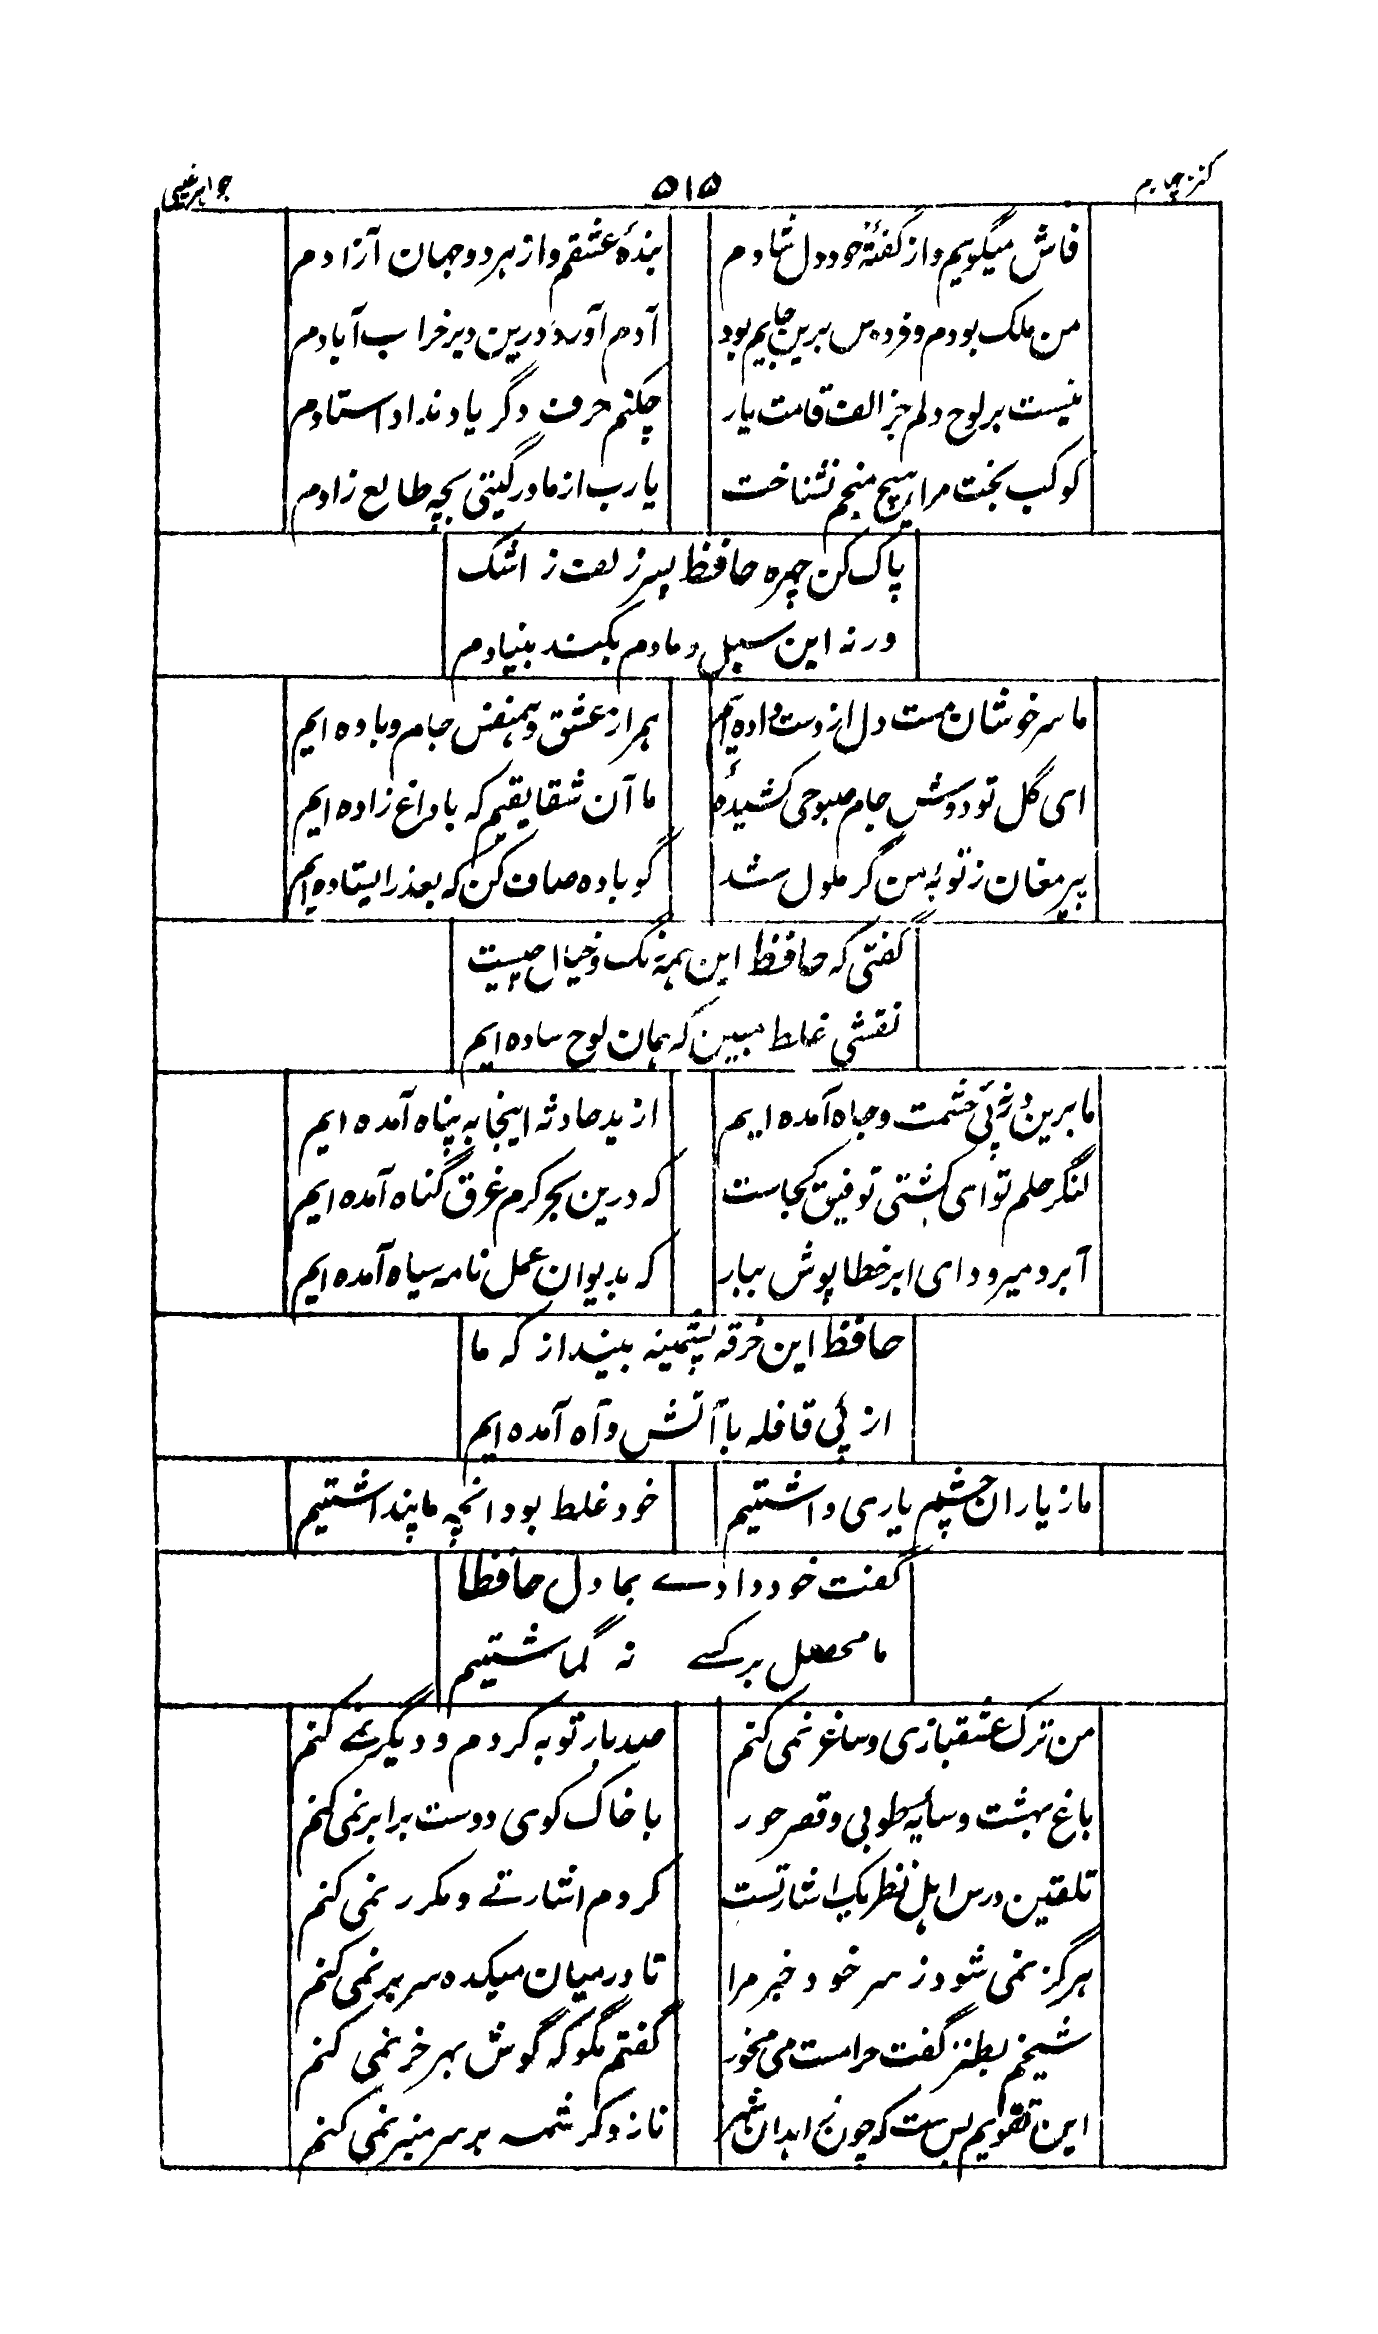 کنز چهارم ۵۱۵ جواهر غیبی
فاش میگویم و از گفتهٔ خود دل شادم بندهٔ عشقم و از هر دو جهان آزادم
من ملک بودم و فردوس برین جایم بود آدم آورد درین دیر خراب آبادم
نیست بر لوح دلم جز الف قامت یار چکنم حرف دگر یاد نداد استادم
کوکب بخت مرا هیچ منجم نشناخت یارب از مادر گیتی بچه طالع زادم
پاک کن چهره حافظ بسر زلف ز اشک
ورنه این سیل دمادم بکند بنیادم
ما سرخوشان مست دل از دست داده ایم همراز عشق و همنفس جام و باده ایم
ای گل تو دوش جام صبوحی کشیدهٔ ما آن شقایقیم که با داغ زاده ایم
پیر مغان ز توبه من گر ملول شد گو باده صاف کن که بعذر ایستاده ایم
گفتی که حافظ این همه رنگ و خیال چیست
نقشی غلط مبین که همان لوح ساده ایم
ما برین در نه پئی حشمت و جاه آمده ایم از بد حادثه اینجا به پناه آمده ایم
لنگر حلم تو ای کشتی توفیق کجاست که درین بحر کرم غرق گناه آمده ایم
آبرو میرود ای ابر خطا پوش ببار که بدیوان عمل نامه سیاه آمده ایم
حافظ این خرقه پشمینه بینداز که ما
از پئی قافله با آتش و آه آمده ایم
ما ز یاران چشم یاری داشتیم خود غلط بود انچه ما پنداشتیم
گفت خود دادے بما دل حافظا
ما محصل بر کسے نه گماشتیم
من ترک عشقبازی و ساغر نمی کنم صد بار توبه کردم و دیگر نمے کنم
باغ بهشت و سایهٔ طوبی و قصر حور با خاک کوی دوست برابر نمی کنم
تلقین درس اهل نظر یک اشارتست کردم اشارتے و مکرر نمی کنم
هرگز نمی شود ز سر خود خبر مرا تا در میان میکده سر بر نمی کنم
شیخم بطنز گفت حرامست می مخور گفتم مگو که گوش بهر خر نمی کنم
این تقویم بس ست که چون زاهدان شهر ناز و کرشمه بر سر منبر نمی کنم